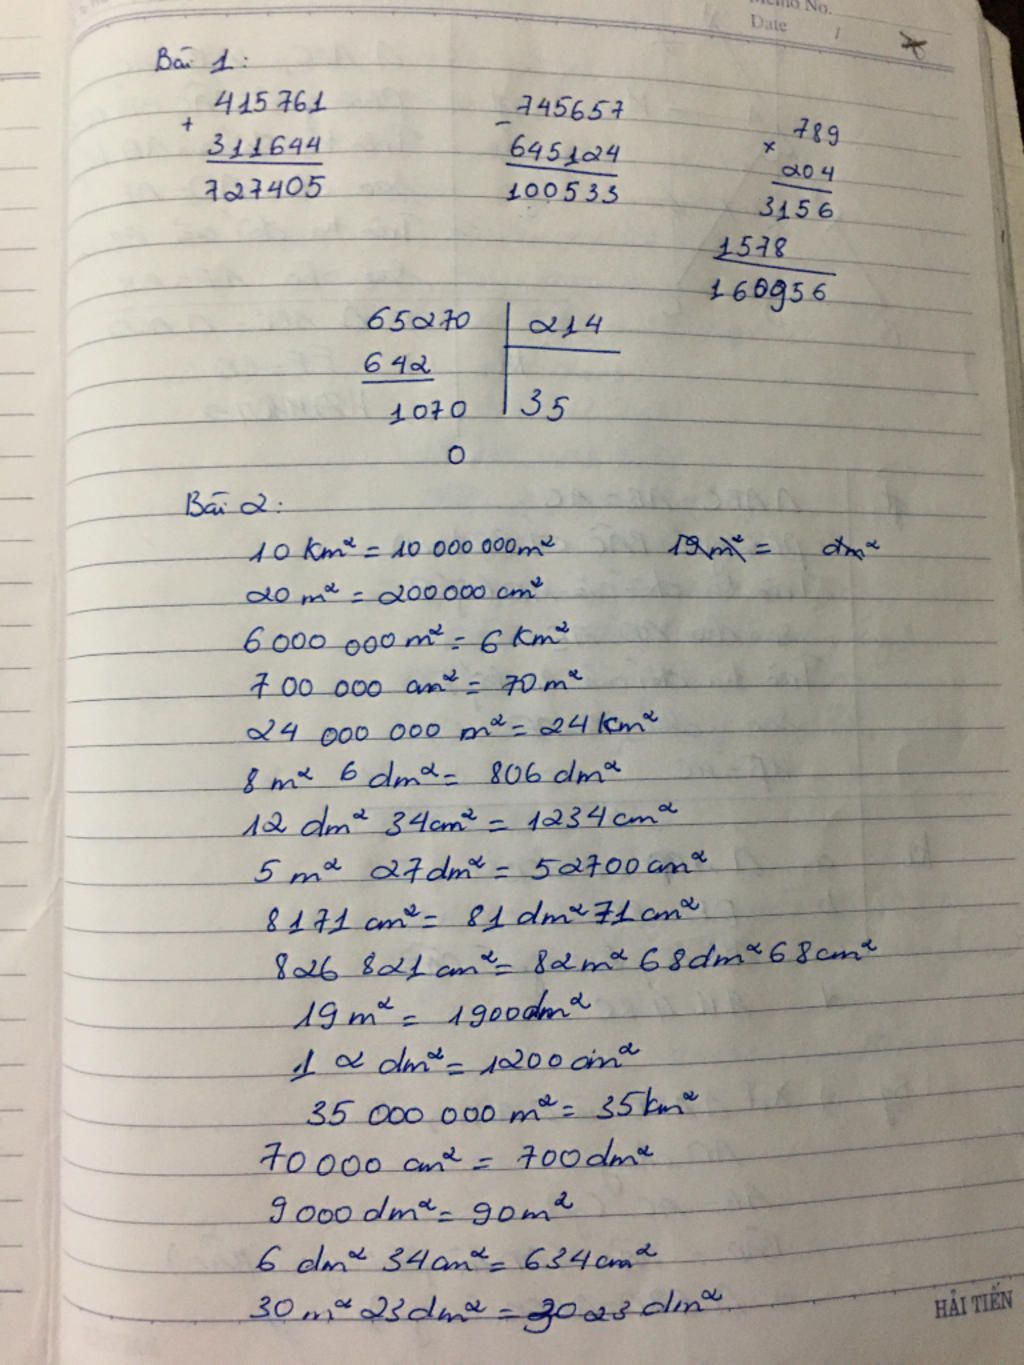 Memo No.
Date /
Bài 1:
415761
+
311644
727405
745657
-
645124
100533
789
x
204
3156
1578
160956
65270 214
642
1070 35
0
Bài 2:
10 km² = 10 000 000m² 19m² = dm²
20 m² = 200000 cm²
6 000 000 m² = 6 km²
700 000 cm² = 70 m²
24 000 000 m² = 24 km²
8 m² 6 dm² = 806 dm²
12 dm² 34cm² = 1234 cm²
5 m² 27dm² = 52700 cm²
8171 cm² = 81 dm² 71 cm²
826 821 cm² = 82m² 68dm² 68cm²
19 m² = 1900dm²
12 dm² = 1200 cm²
35 000 000 m² = 35km²
70 000 cm² = 700 dm²
9 000 dm² = 90 m²
6 dm² 34cm² = 634cm²
30 m² 23 dm² = 3023 dm²
HẢI TIẾN